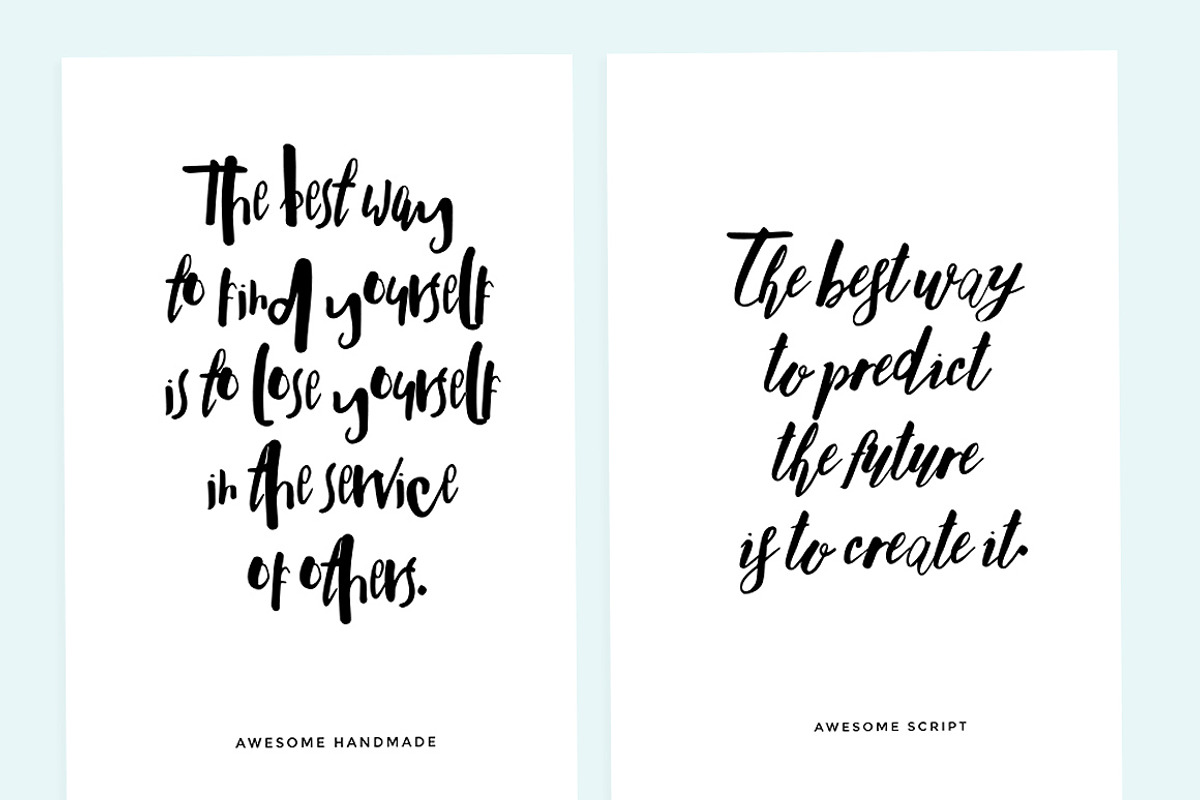 The best way
to find yourself
is to lose yourself
in the service
of others.
AWESOME HANDMADE
The best way
to predict
the future
is to create it.
AWESOME SCRIPT